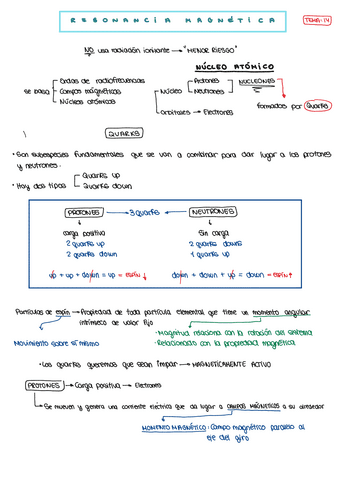 RESONANCIA MAGNÉTICA
TEMA-14
NO usa radiación ionizante → "MENOR RIESGO"
NÚCLEO ATÓMICO
se basa
Ondas de radiofrecuencias
Campos magnéticos
Núcleos atómicos
Núcleo
Protones
Neutrones
NUCLEONES
formados por Quarks
orbitales → Electrones
QUARKS
• Son subespecies fundamentales que se van a combinar para dar lugar a los protones
y neutrones.
• Hay dos tipos
Quarks up
Quarks down
PROTONES → 3 quarks ← NEUTRONES
carga positiva
Sin carga
2 quarks up
2 quarks downs
2 quarks down
1 quarks up
up + up + down = up = ESPÍN ↓
down + down + up = down = ESPÍN ↑
Partículas de espín → Propiedad de toda partícula elemental que tiene un momento angular
intrínseco de valor fijo
Movimiento sobre sí mismo
• Magnitud relaciona con la rotación del sistema
• Relacionados con la propiedad magnética
• Los quarks queremos que sean impar → MAGNÉTICAMENTE ACTIVO
PROTONES → Carga positiva → Electrones
Se mueven y genera una corriente eléctrica que da lugar a CAMPOS MAGNÉTICOS a su alrededor
MOMENTO MAGNÉTICO: Campo magnético paralelo al
eje del giro